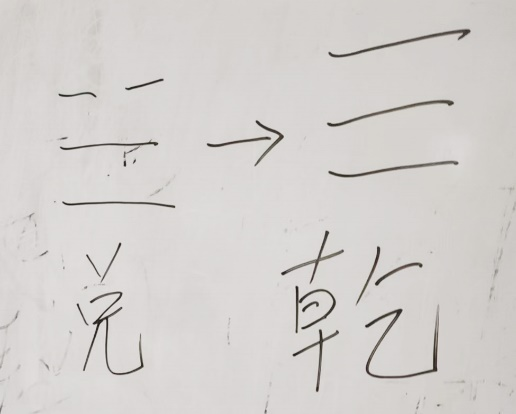 ☱ → ☰
兑 乾